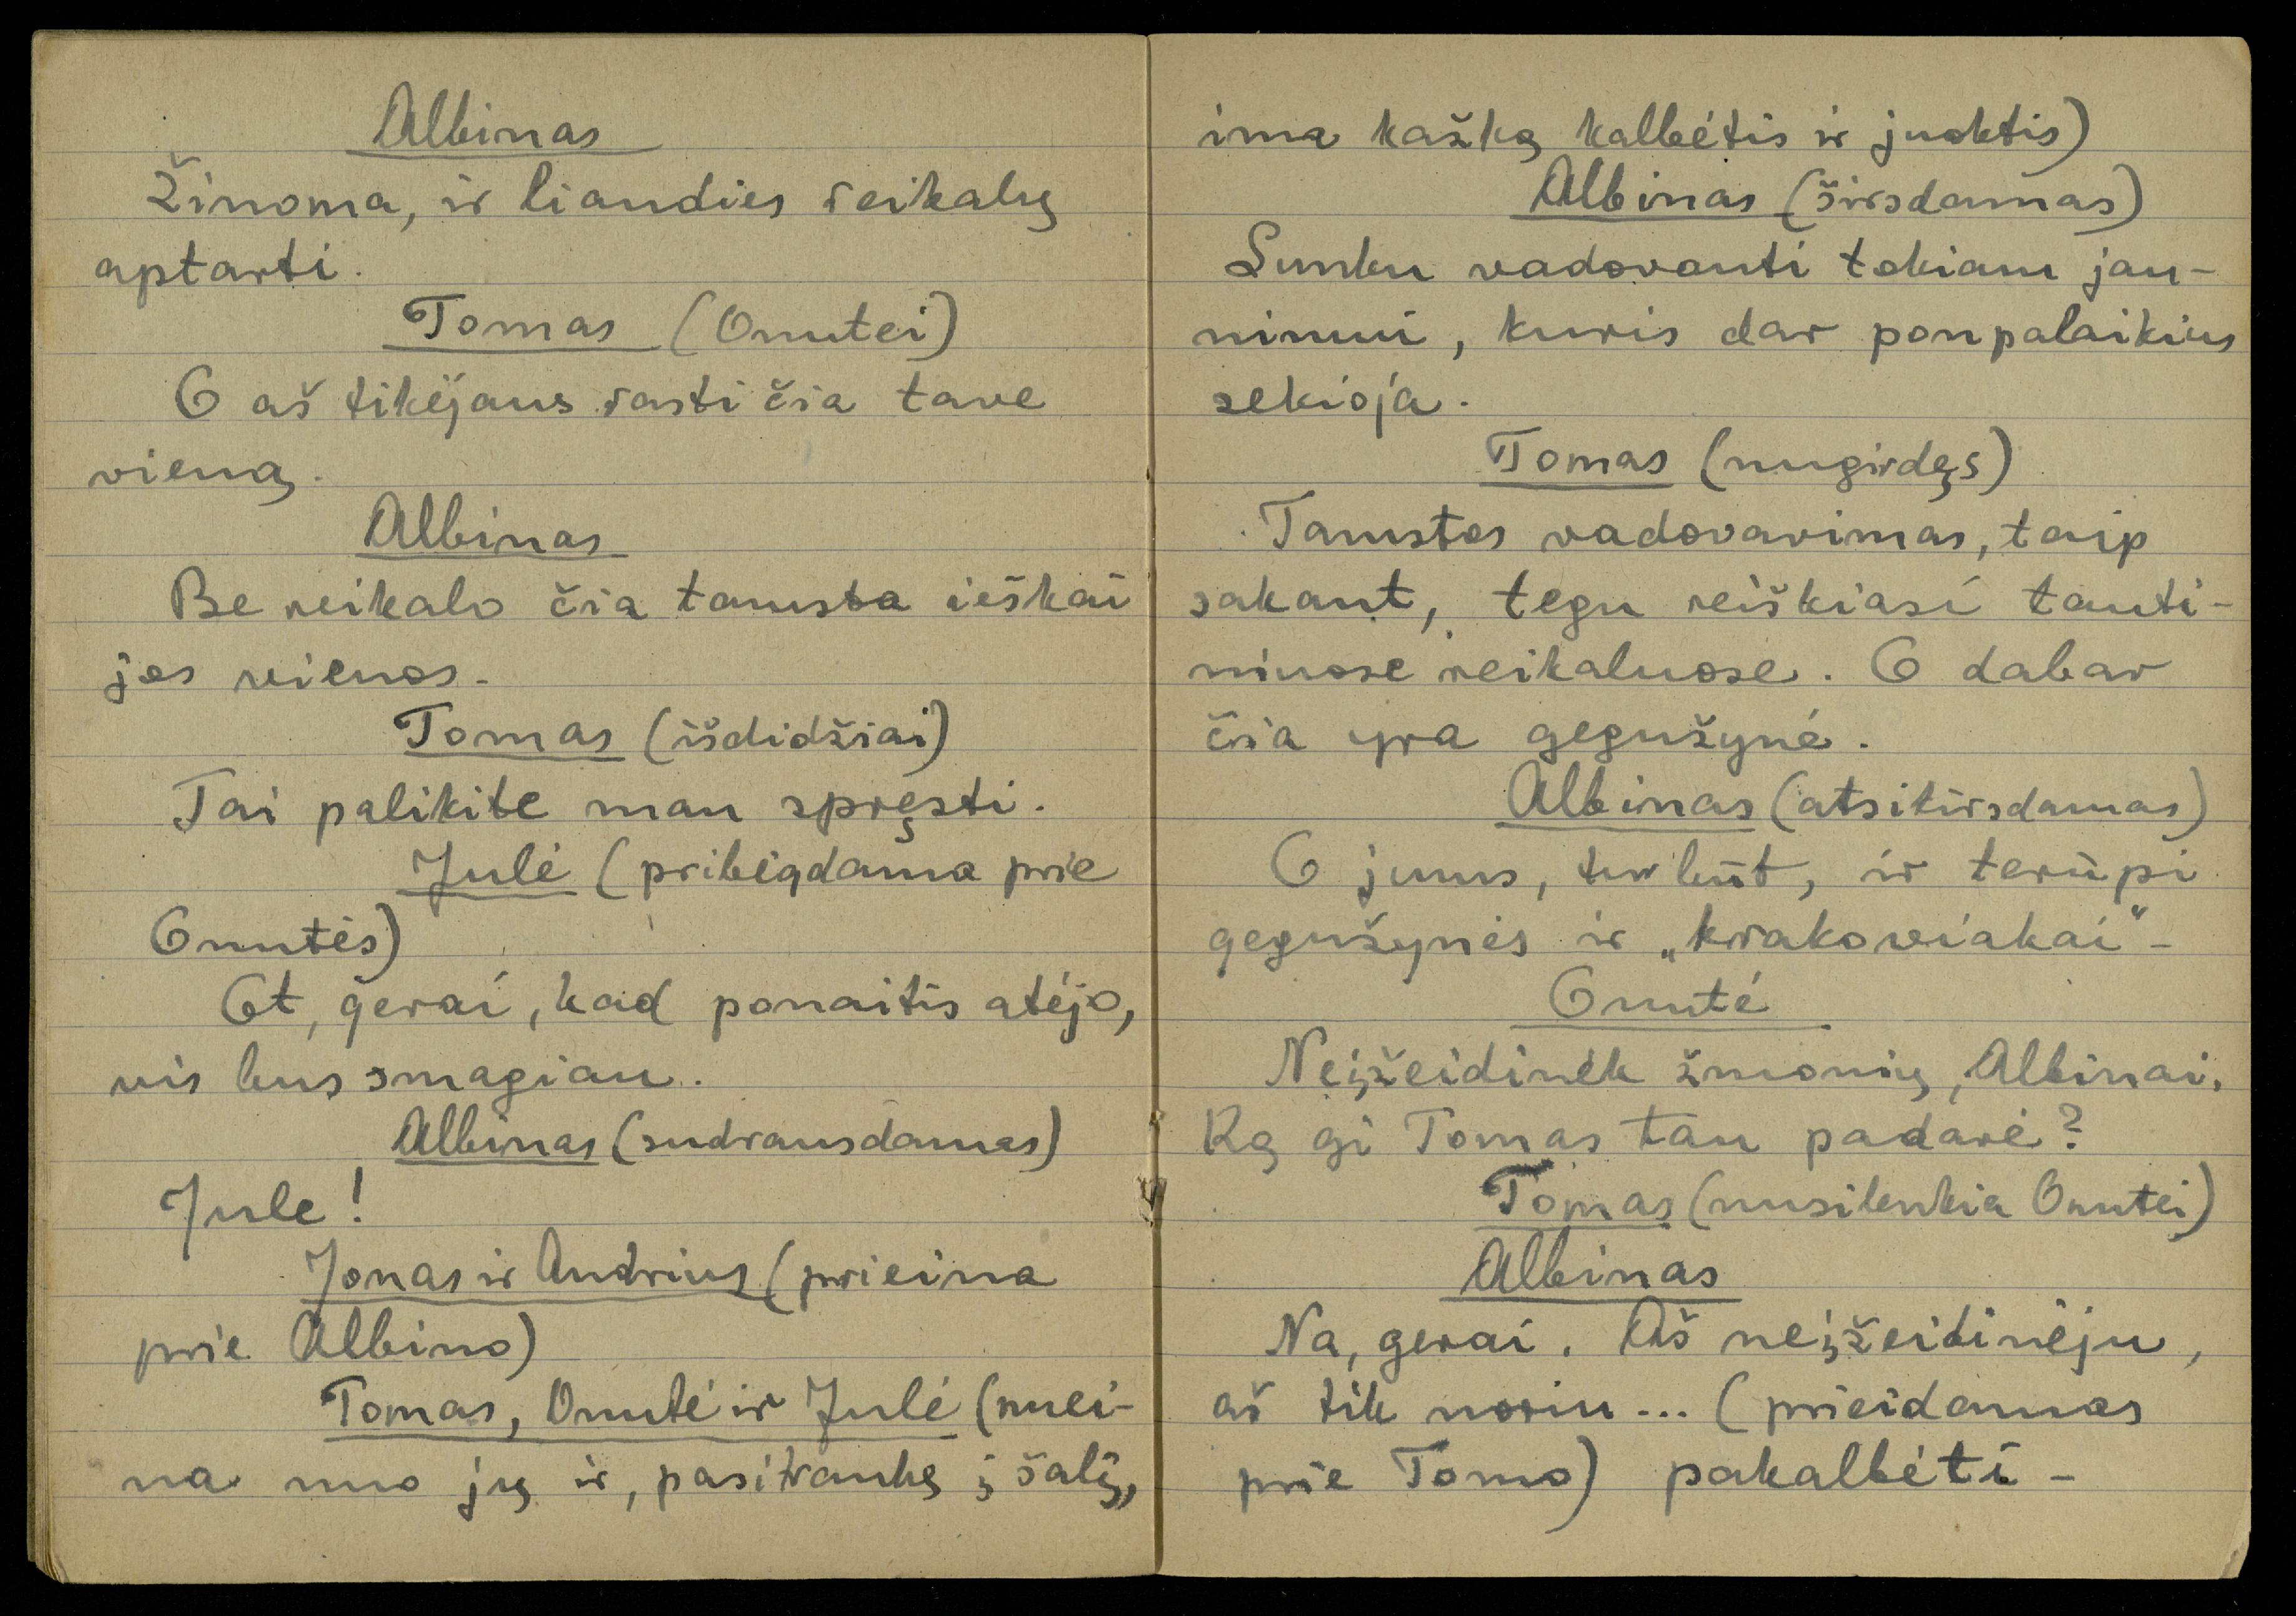 Albinas
Žinoma, ir liaudies reikalų
aptarti.
Tomas (Onutei)
O aš tikėjaus rasti čia tave
vieną.
Albinas
Be reikalo čia tamsta ieškai
jos vienos.
Tomas (išdidžiai)
Tai palikite man spręsti.
Julė (pribėgdama prie
Onutės)
Ot, gerai, kad ponaitis atėjo,
vis bus smagiau.
Albinas (sudrausdamas)
Jule!
Jonas ir Andrius (prieina
prie Albino)
Tomas, Onutė ir Julė (nuei-
na nuo jų ir, pasitraukę į šalį,
ima kažką kalbėtis ir juoktis)
Albinas (širsdamas)
Sunku vadovauti tokiam jau-
nimui, kuris dar ponpalaikius
sekioja.
Tomas (nugirdęs)
Tamstos vadovavimas, taip
sakant, tegu reiškiasi tauti-
niuose reikaluose. O dabar
čia yra gegužynė.
Albinas (atsikirsdamas)
O jums, turbūt, ir terūpi
gegužynės ir „krakoviakai“-
Onutė
Neįžeidinėk žmonių, Albinai.
Ką gi Tomas tau padarė?
Tomas (nusilenkia Onutei)
Albinas
Na, gerai. Aš neįžeidinėju,
aš tik noriu... (prieidamas
prie Tomo) pakalbėti -